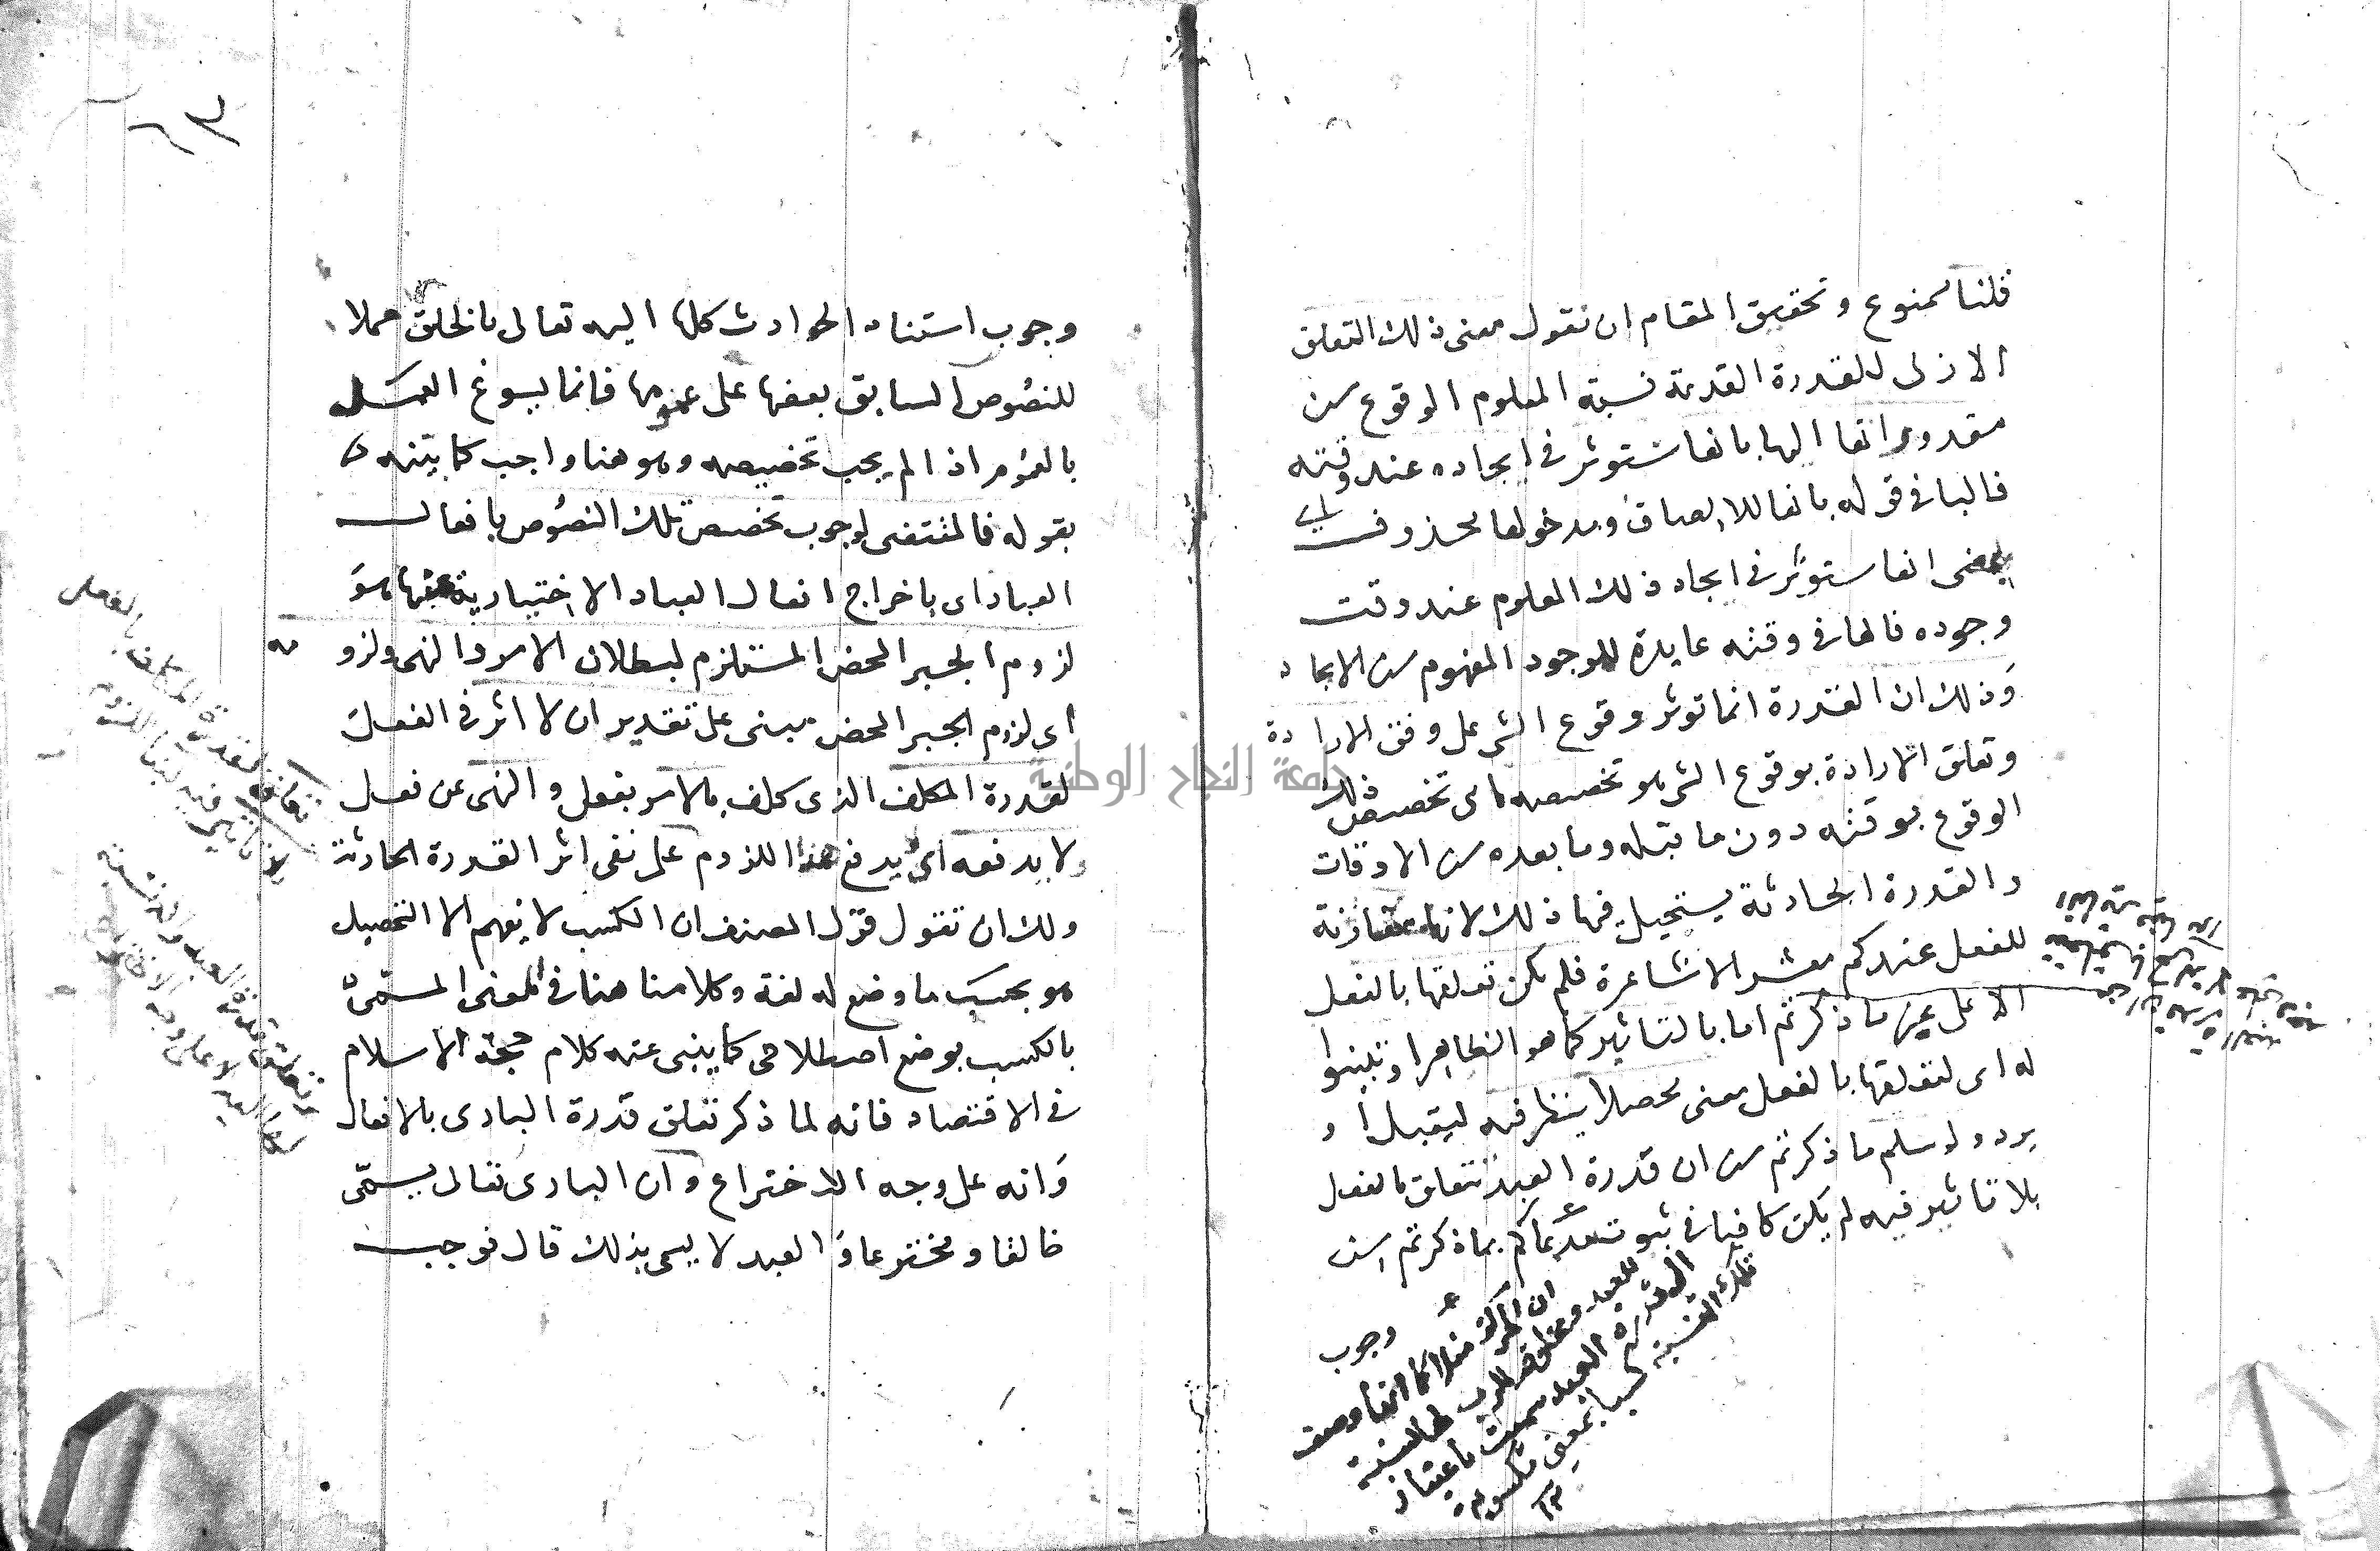 قلنا ممنوع وتحقيق المقام ان نقول معنى ذلك التعلق
الازلى للقدرة القديمة نسبة المعلوم الوقوع من
مقدوراتها اليها بانها ستوثر فى ايجاده عند وقته
فالبا فى قوله بانها للالصاق ومدخولها محذوف
انها ستوثر فى ايجاد ذلك المعلوم عند وقت
وجوده فالها فى وقته عايدة للوجود المفهوم من الايجاد
وذلك ان القدرة انما توثر وقوع الشى على وفق الارادة
وتعلق الارادة بوقوع الشى هو تخصيصه اى تخصيص ذلك
الوقوع بوقته دون ما قبله وما بعده من الاوقات
والقدرة الحادثة يستحيل فيها ذلك لانها مقارنة
للفعل عندكم معشر الاشاعرة فلم يكن تعلقها بالفعل
الا على غير ما ذكرتم اما بالتاثير كما هو الظاهر او تبينوا
له اى لتعلقها بالفعل معنى محصلا ينظر فيه ليقبل او
يرد ولو سلم ما ذكرتم من ان قدرة العبد تتعلق بالفعل
بلا تاثير فيه لم يكن كافيا فى ثبوت مدعاكم بما ذكرتم من
وجوب
ان الحركة مثلا كما انها وصف
للعبد ومخلوقة للرب لها نسبة
الى قدرة العبد سميت باعتبار
تلك النسبة كسبا بمعنى مكسوبة
جامعة النجاح الوطنية
وجوب استناد الحوادث كلها اليه تعالى بالخلق عملا
للنصوص السابق بعضها على عمومها فانما يسوغ التمسك
بالعموم اذا لم يجب تخصيصه وهو هنا واجب كما بينه
بقوله فالمقتضى لوجوب تخصيص تلك النصوص بافعال
العباد اى باخراج افعال العباد الاختيارية منها هو
لزوم الجبر المحض المستلزم لبطلان الامر والنهى ولزومه
اى لزوم الجبر المحض مبنى على تقدير ان لا اثر فى الفعل
لقدرة المكلف الذى كلف بالامر بفعل والنهى عن فعل
ولا يدفعه اى يدفع هذا اللزوم على نفى اثر القدرة الحادثة
ولك ان تقول قول المصنف ان الكسب لا يفهم الا التحصيل
هو بحسب ما وضع له لغة وكلامنا هنا فى المعنى المسمى
بالكسب بوضع اصطلاحى كما ينبى عنه كلام حجة الاسلام
فى الاقتصاد فانه لما ذكر تعلق قدرة البارى بالافعال
وانه على وجه الاختراع وان البارى تعالى يسمى
خالقا ومخترعا والعبد لا يسمى بذلك قال فوجب
تعلق لقدرة المكلف بالفعل
بلا تاثير فيه لبقا اللزوم